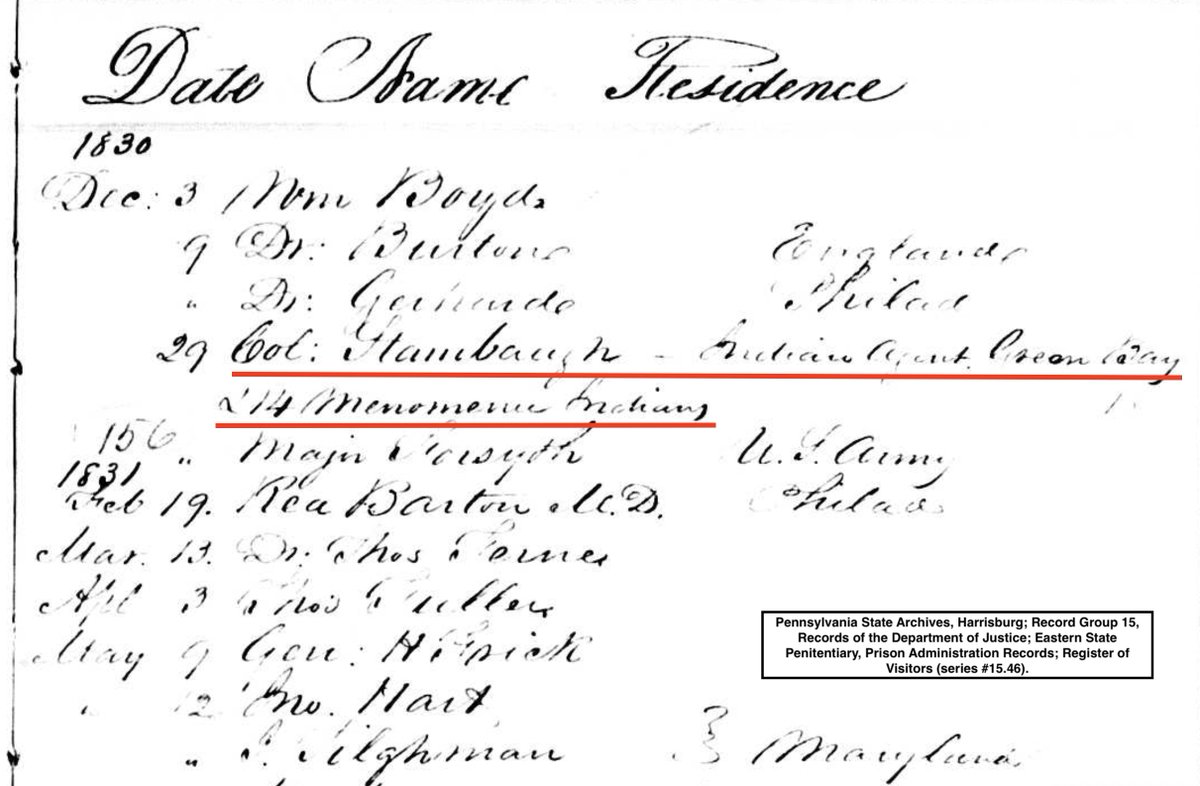 Date Name Residence
1830
Dec: 3 Wm Boyd
9 Dr: Burton England
" Dr: Philad
29 Col: Stambaugh – Indian Agent Green Bay
& 14 Menomenie Indians
156 " Major Forsyth U.S. Army
1831
Feb 19. Rea Barton M.D. Philad
Mar. 13. Dr: Thos Ferne
Apl 3 Thos Fuller
May 9 Gen: H Frick
" 12 Jno. Hart
" J. Tilghman } Maryland
Pennsylvania State Archives, Harrisburg; Record Group 15,
Records of the Department of Justice; Eastern State
Penitentiary, Prison Administration Records; Register of
Visitors (series #15.46).